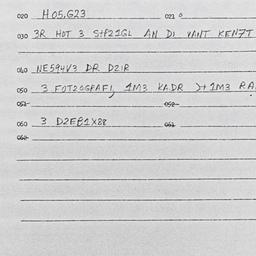 020 H05,G23 021 0
030 3R HOT 3 St₽21GL AN DI VANT KEN7T
040 NE594V3 DR D21R
050 3 FOT20GRAFI, 1M3 KADR )+ 1M3 RA
051 052
060 3 D2EB1X88 061
062